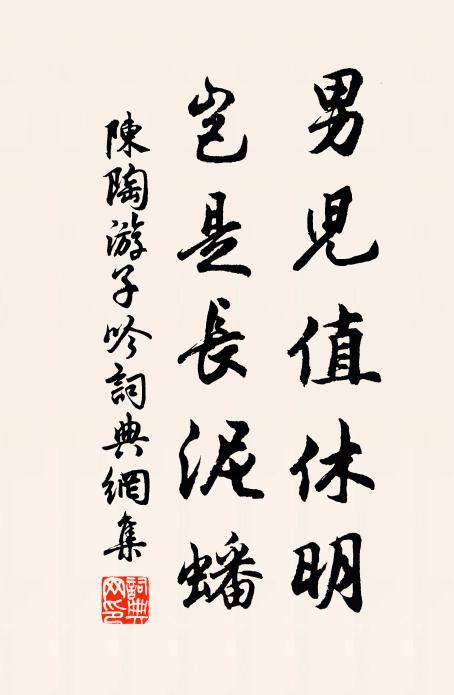 男兒值休明
豈是長泥蟠
陳陶游子吟詞典網集
詞典网印